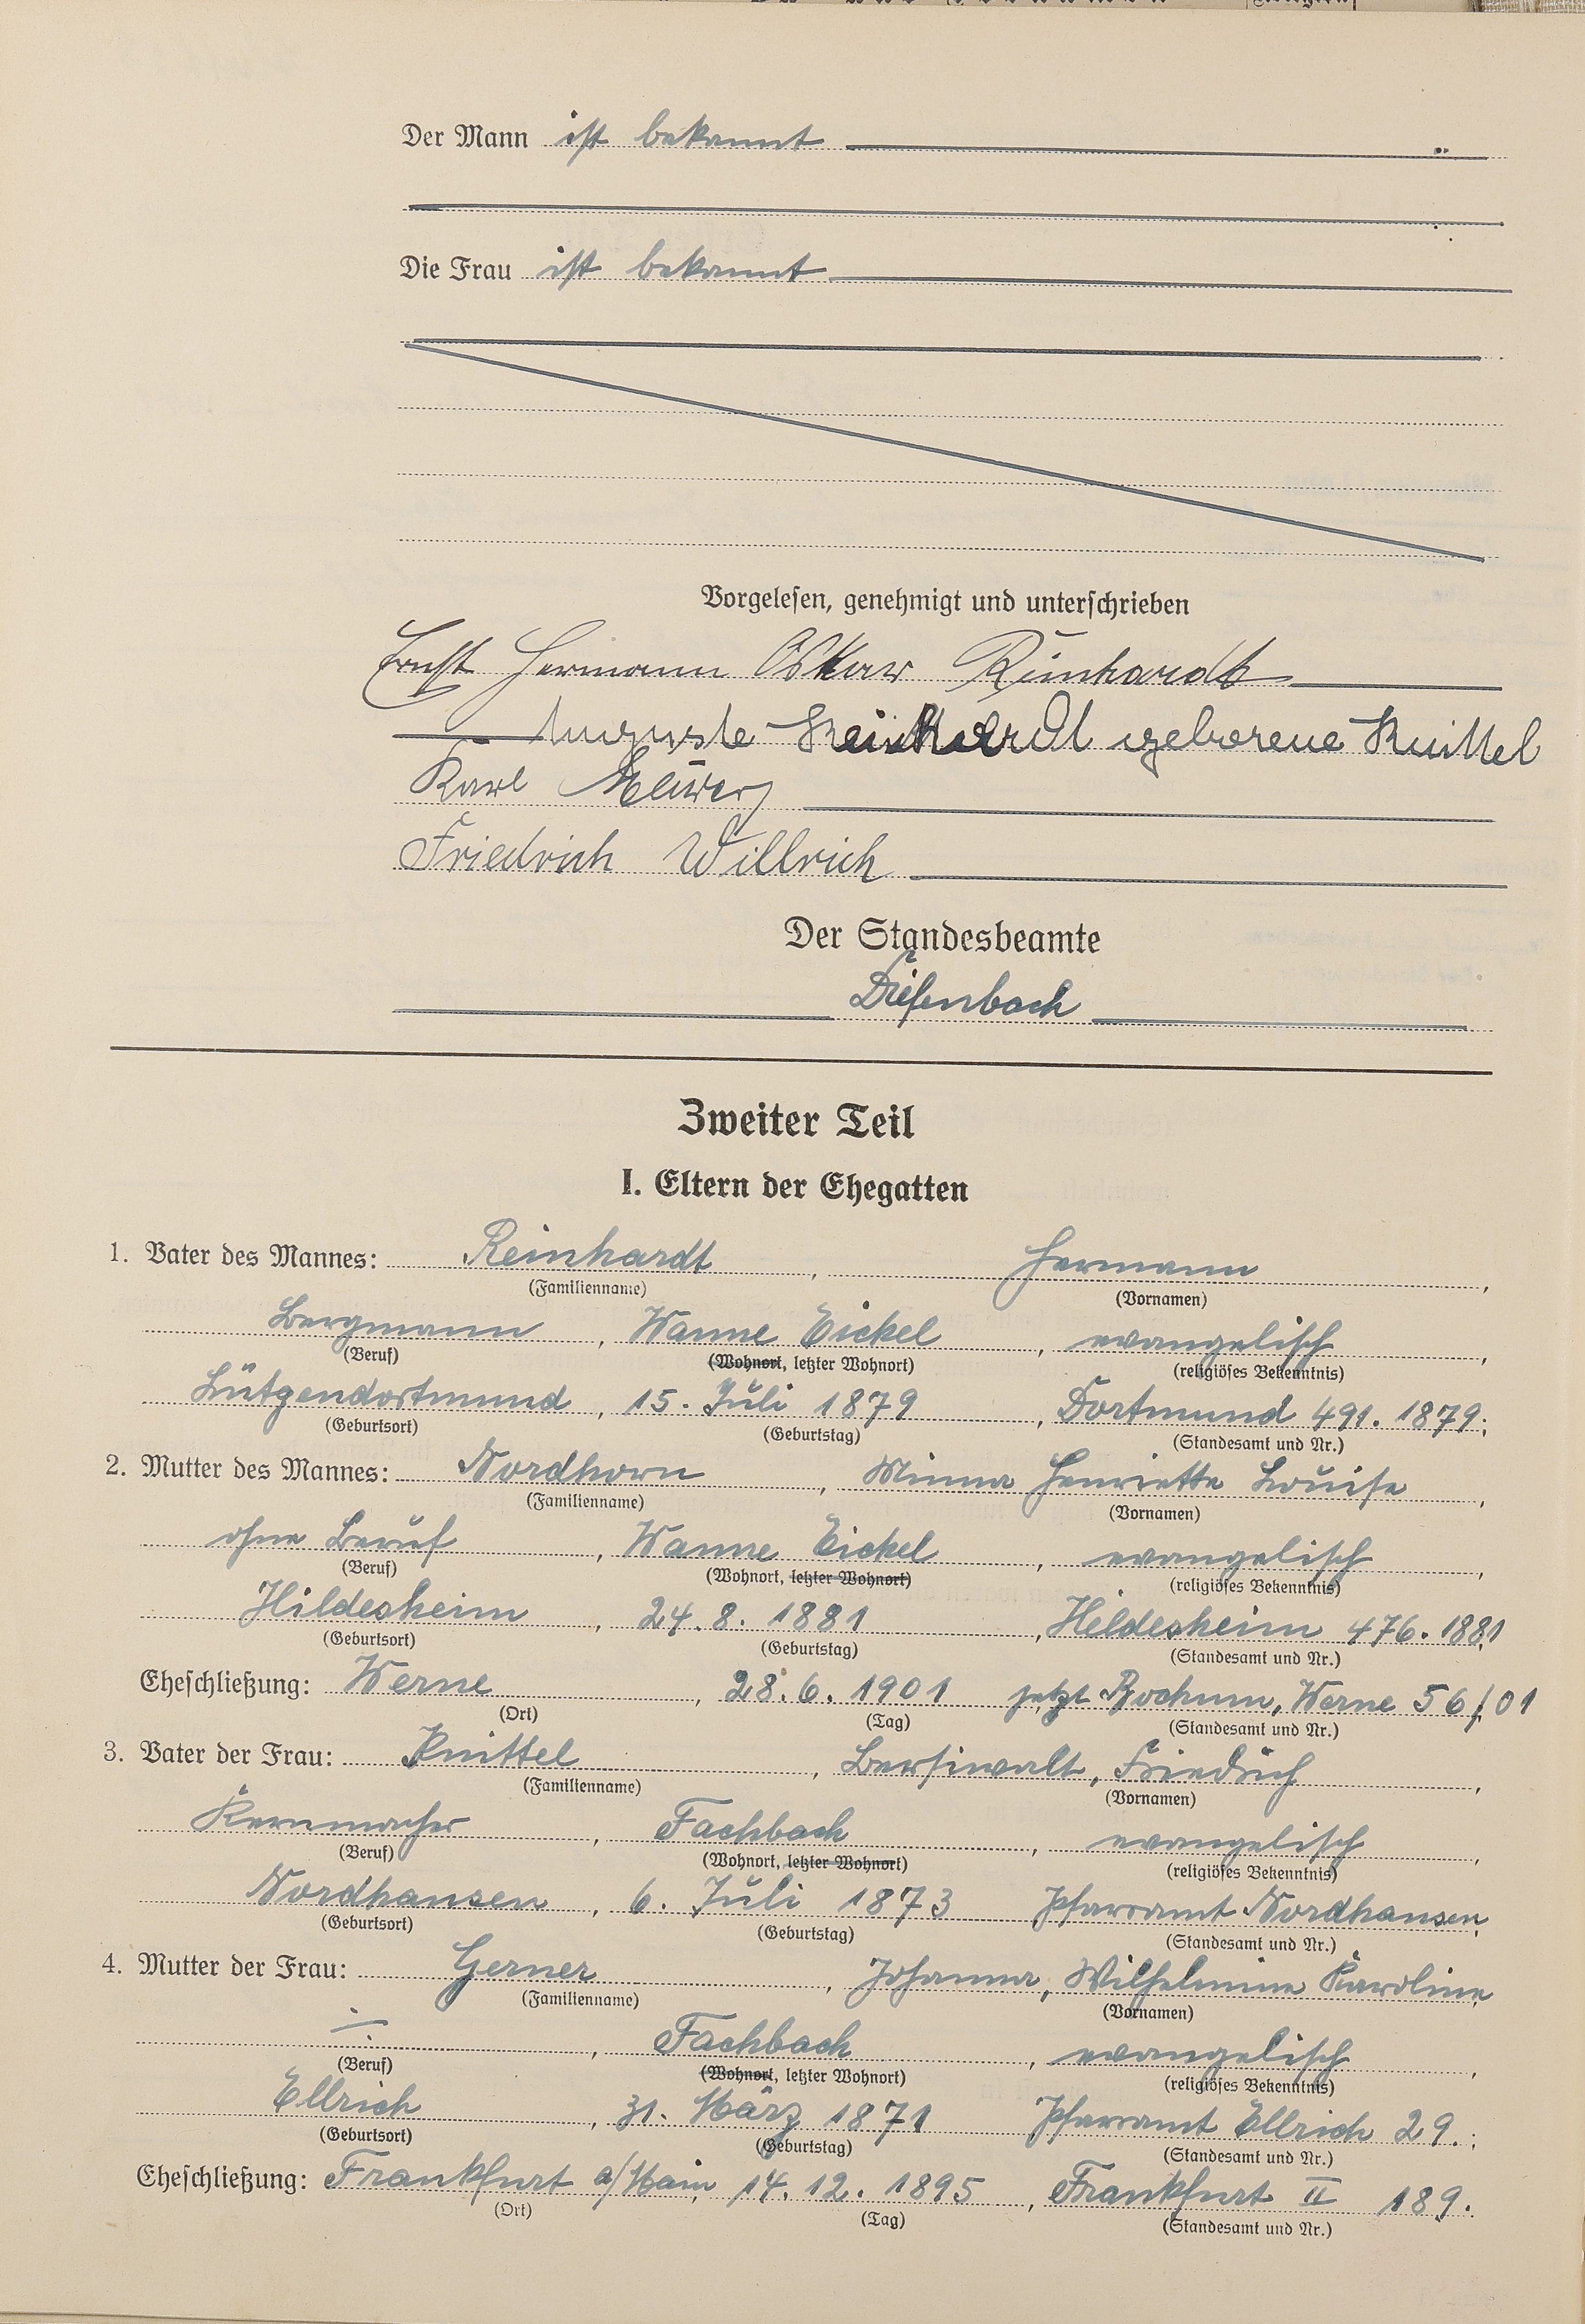 Der Mann ist bekannt
Die Frau ist bekannt
Vorgelesen, genehmigt und unterschrieben
Ernst Hermann Oskar Reinhardt
Auguste Reinhardt geborene Knittel
Karl
Friedrich Willrich
Der Standesbeamte
Diefenbach
Zweiter Teil
I. Eltern der Ehegatten
1. Vater des Mannes: Reinhardt, Hermann,
(Familienname) (Vornamen)
Bergmann, Wanne Eickel, evangelisch,
(Beruf) (Wohnort, letzter Wohnort) (religiöses Bekenntnis)
Lütgendortmund, 15. Juli 1879, Dortmund 491. 1879;
(Geburtsort) (Geburtstag) (Standesamt und Nr.)
2. Mutter des Mannes: Nordhorn, Minna Henriette Louise,
(Familienname) (Vornamen)
ohne Beruf, Wanne Eickel, evangelisch,
(Beruf) (Wohnort, letzter Wohnort) (religiöses Bekenntnis)
Hildesheim, 24. 8. 1881, Hildesheim 476. 1881
(Geburtsort) (Geburtstag) (Standesamt und Nr.)
Eheschließung: Werne, 28. 6. 1901 jetzt Bochum, Werne 56/01
(Ort) (Tag) (Standesamt und Nr.)
3. Vater der Frau: Knittel, Friedrich,
(Familienname) (Vornamen)
Kernmacher, Fachbach, evangelisch,
(Beruf) (Wohnort, letzter Wohnort) (religiöses Bekenntnis)
Nordhausen, 6. Juli 1873 Pfarramt Nordhausen
(Geburtsort) (Geburtstag) (Standesamt und Nr.)
4. Mutter der Frau: Gerner, Johanna, Wilhelmine Karoline
(Familienname) (Vornamen)
—, Fachbach, evangelisch,
(Beruf) (Wohnort, letzter Wohnort) (religiöses Bekenntnis)
Ellrich, 31. März 1871 Pfarramt Ellrich 29.;
(Geburtsort) (Geburtstag) (Standesamt und Nr.)
Eheschließung: Frankfurt a/Main, 14. 12. 1895, Frankfurt II 189.
(Ort) (Tag) (Standesamt und Nr.)